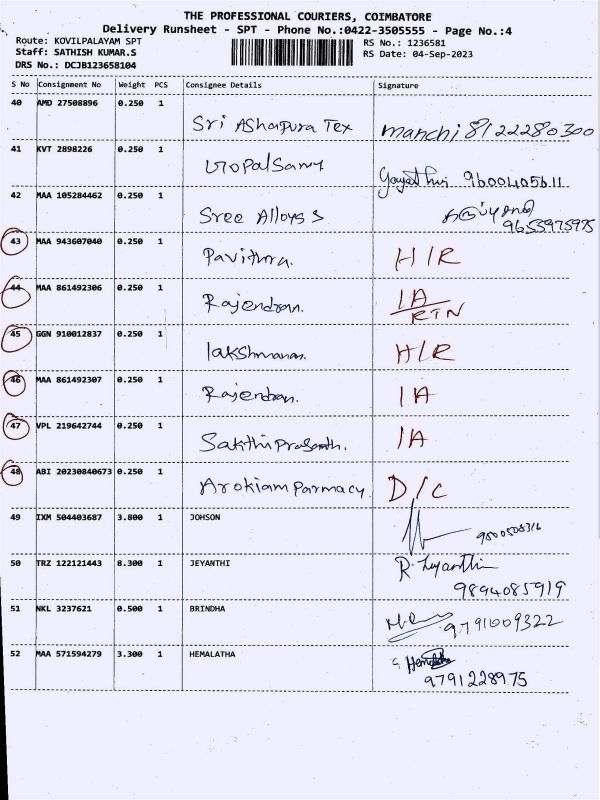 THE PROFESSIONAL COURIERS, COIMBATORE
Delivery Runsheet - SPT - Phone No.:0422-3505555 - Page No.:4
Route: KOVILPALAYAM SPT RS No.: 1236581
Staff: SATHISH KUMAR.S RS Date: 04-Sep-2023
DRS No.: DCJB123658104
S No Consignment No Weight PCS Consignee Details Signature
40 AMD 27508896 0.250 1
Sri Ashapura Tex manchi 8122280300
41 KVT 2898226 0.250 1
Gopal Samy Gayathri 9600405611
42 MAA 105284462 0.250 1
Sree Alloys S
9655975975
43 MAA 943607040 0.250 1
Pavithra. H/R
44 MAA 861492306 0.250 1
Rajendran. IA
RTN
45 GGN 910012837 0.250 1
lakshmanan. H/R
46 MAA 861492307 0.250 1
Rajendran. IA
47 VPL 219642744 0.250 1
Sakthi Prasanth. IA
48 ABI 20230840673 0.250 1
Arokiam Parmacy. D/C
49 IXM 504403687 3.800 1 JOHSON
9500508316
50 TRZ 122121443 8.300 1 JEYANTHI R. Jeyanthi
9894085919
51 NKL 3237621 0.500 1 BRINDHA
9791009322
52 MAA 571594279 3.300 1 HEMALATHA
9791228975